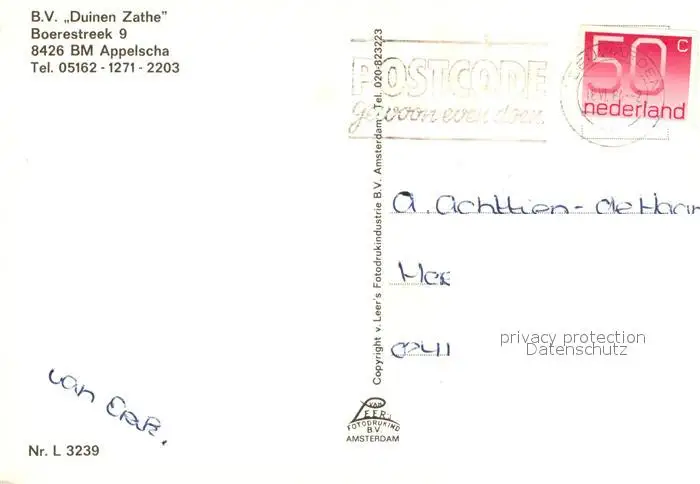 B.V. „Duinen Zathe”
Boerestreek 9
8426 BM Appelscha
Tel. 05162 - 1271 - 2203
POSTCODE
gewoon even doen
50 c
nederland
Copyright v. Leer's Fotodrukindustrie B.V. Amsterdam - Tel. 020-823223
A. Achttien - de Haan
privacy protection
Datenschutz
VAN
LEER'S
FOTODRUKIND
B.V.
AMSTERDAM
Nr. L 3239